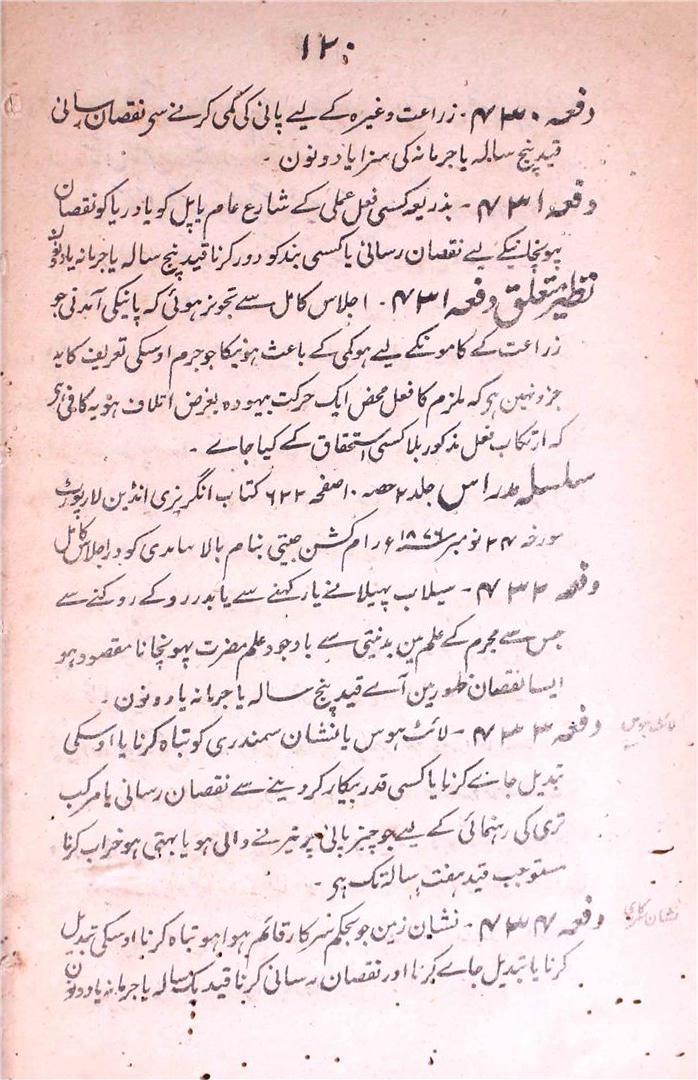 ۱۲۰
دفعہ ۴۳۰ - زراعت وغیرہ کے لیے پانی کی کمی کرنے سے نقصان رسانی
قید پنج سالہ یا جرمانہ کی سزا یا دونون -
دفعہ ۴۳۱ - بذریعہ کسی فعل عملی کے شارع عام یا پل کو یا دریا کو نقصان
پہونچانیکے لیے نقصان رسانی یا کسی بند کو دور کرنا قید پنج سالہ یا جرمانہ یا دونون
نظیر متعلق دفعہ ۴۳۱ - اجلاس کامل سے تجویز ہوئی کہ پانیکی آمدنی جو
زراعت کے کامونکے لیے ہو کمی کے باعث ہونیکا جو جرم اوسکی تعریف کا یہ
جزو نہین ہی کہ ملزم کا فعل محض ایک حرکت بیہودہ بغرض اتلاف ہو یہ کافی ہی
کہ ارتکاب فعل مذکور بلا کسی استحقاق کے کیا جاے -
سلسلہ مدراس جلد ۲ حصہ ۱۰ صفحہ ۶۲۲ کتاب انگریزی انڈین لا رپورٹ
مورخہ ۲۴ نومبر ۱۸۷۶ء رام کشن چیتی بنام بالا ہامدی کودر اجلاس کامل
دفعہ ۴۳۲ - سیلاب پہیلانے یا رکہنے سے یا بدررو کے روکنے سے
جس سے مجرم کے علم مین بدنیتی سے باوجود علم مضرت پہونچانا مقصود ہو
ایسا نقصان ظہور مین آے قید پنج سالہ یا جرمانہ یا دونون -
دفعہ ۴۳۳ - لائٹ ہوس یا نشان سمندری کو تباہ کرنا یا اوسکی
لائٹ ہوس
تبدیل جاے کرنا یا کسی قدر بیکار کردینے سے نقصان رسانی یا مرکب
تری کی رہنمائی کے لیے جو چیز پانی پر تیرنے والی ہو یا بہتی ہو خراب کرنا
مستوجب قید ہفت سالہ تک ہی -
دفعہ ۴۳۴ - نشان زمین جو بحکم سرکار قائم ہوا ہو تباہ کرنا اوسکی تبدیل
نشان سرکاری
کرنا یا تبدیل جاے کرنا اور نقصان رسانی کرنا قید یک سالہ یا جرمانہ یا دونون